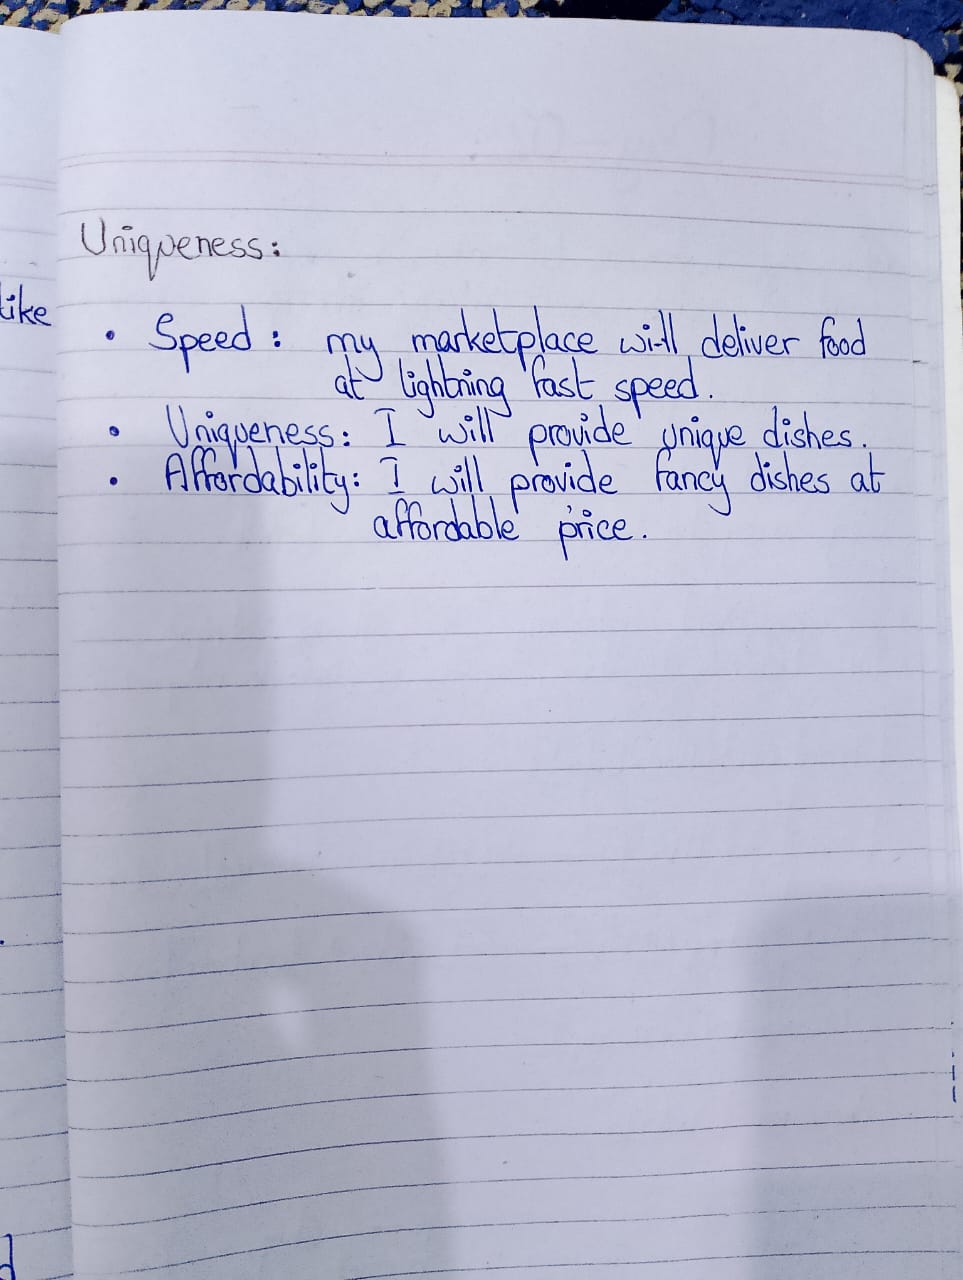 Uniqueness:
like
• Speed: my marketplace will deliver food
at lightning fast speed.
• Uniqueness: I will provide unique dishes.
• Affordability: I will provide fancy dishes at
affordable price.